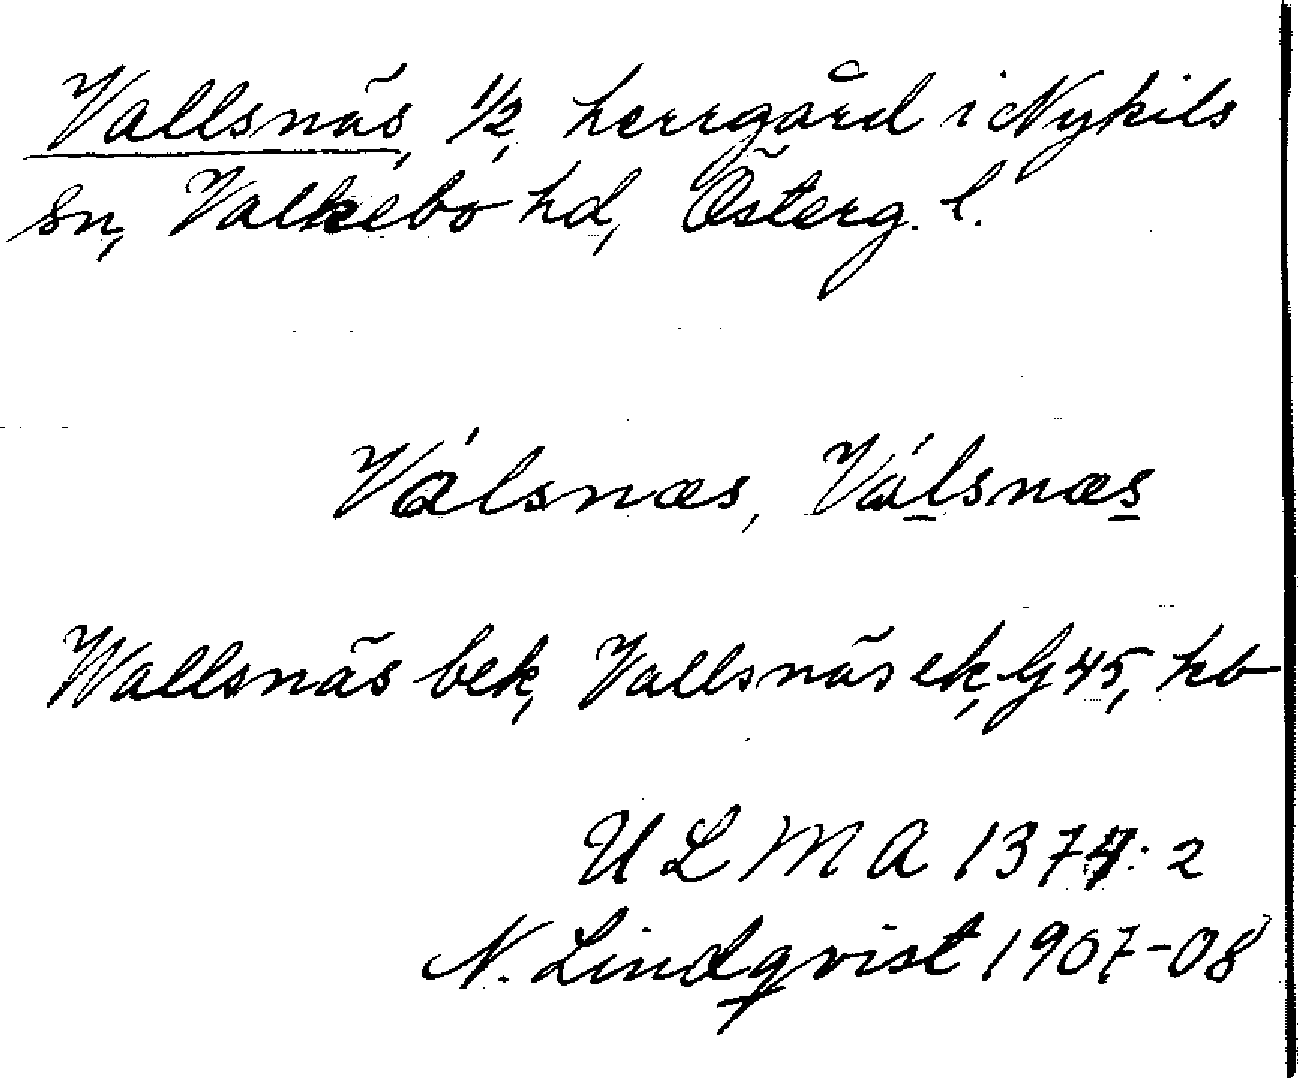 Vallsnäs, 1/2, herrgård i Nykils
sn, Valkebo hd, Österg. l.
Válsnæs, Válsnæs
Wallsnäs bek, Vallsnäs ek, G 45, hb
U L M A 1374:2
N. Lindqvist 1907-08